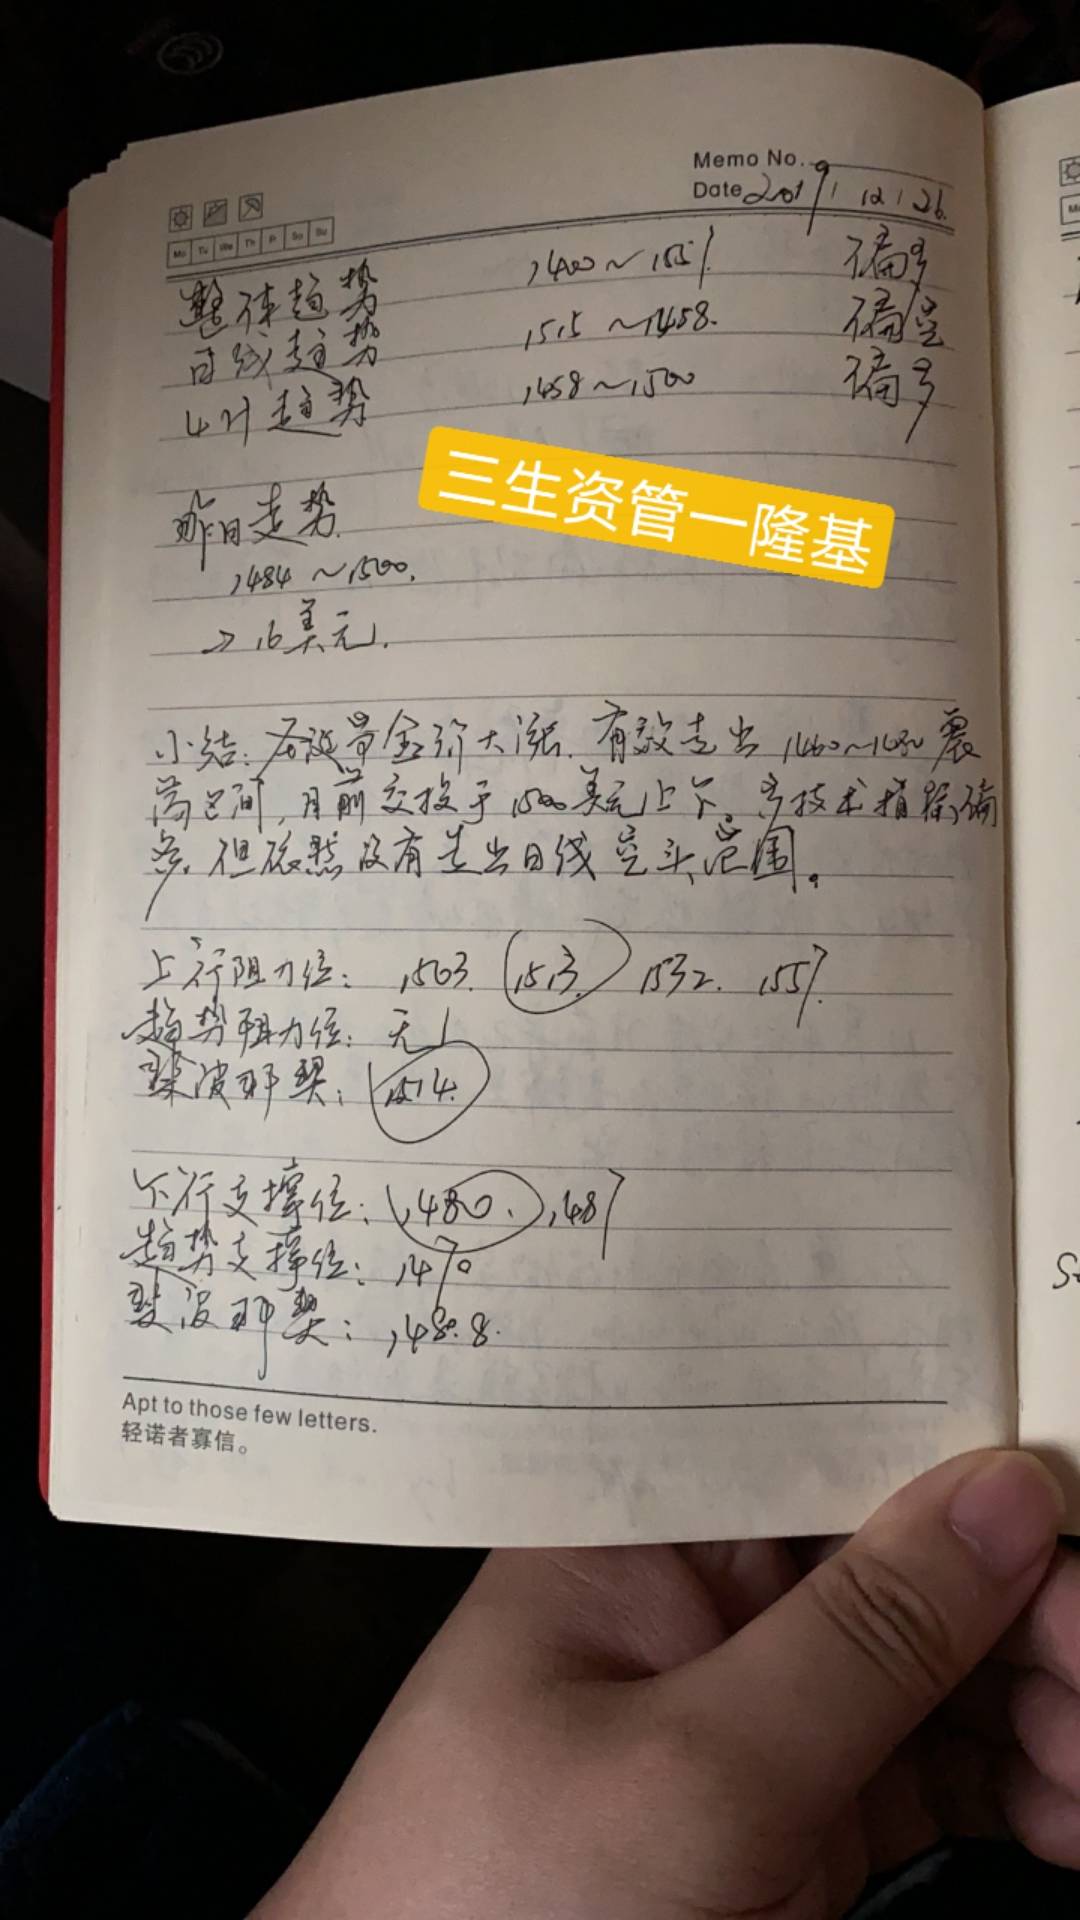 Memo No.
Date 2019 / 12 / 26.
Mo Tu We Th Fr Sa Su
整体趋势 1400～1557 偏多
日线趋势 1515～1458. 偏空
4小时趋势 1458～1500 偏多
三生资管一隆基
昨日走势
1484～1500.
→16美元.
小结: 圣诞节金价大涨. 有效走出 1460～1480震
荡区间, 目前交投于1500美元上下, 多技术指标偏
多. 但依然没有走出日线空头范围。
上行阻力位: 1503. 1513. 1532. 1557.
趋势阻力位: 无
斐波那契: 1514.
下行支撑位: 1480. 1487
趋势支撑位: 1470
斐波那契: 1480.8.
Apt to those few letters.
轻诺者寡信。